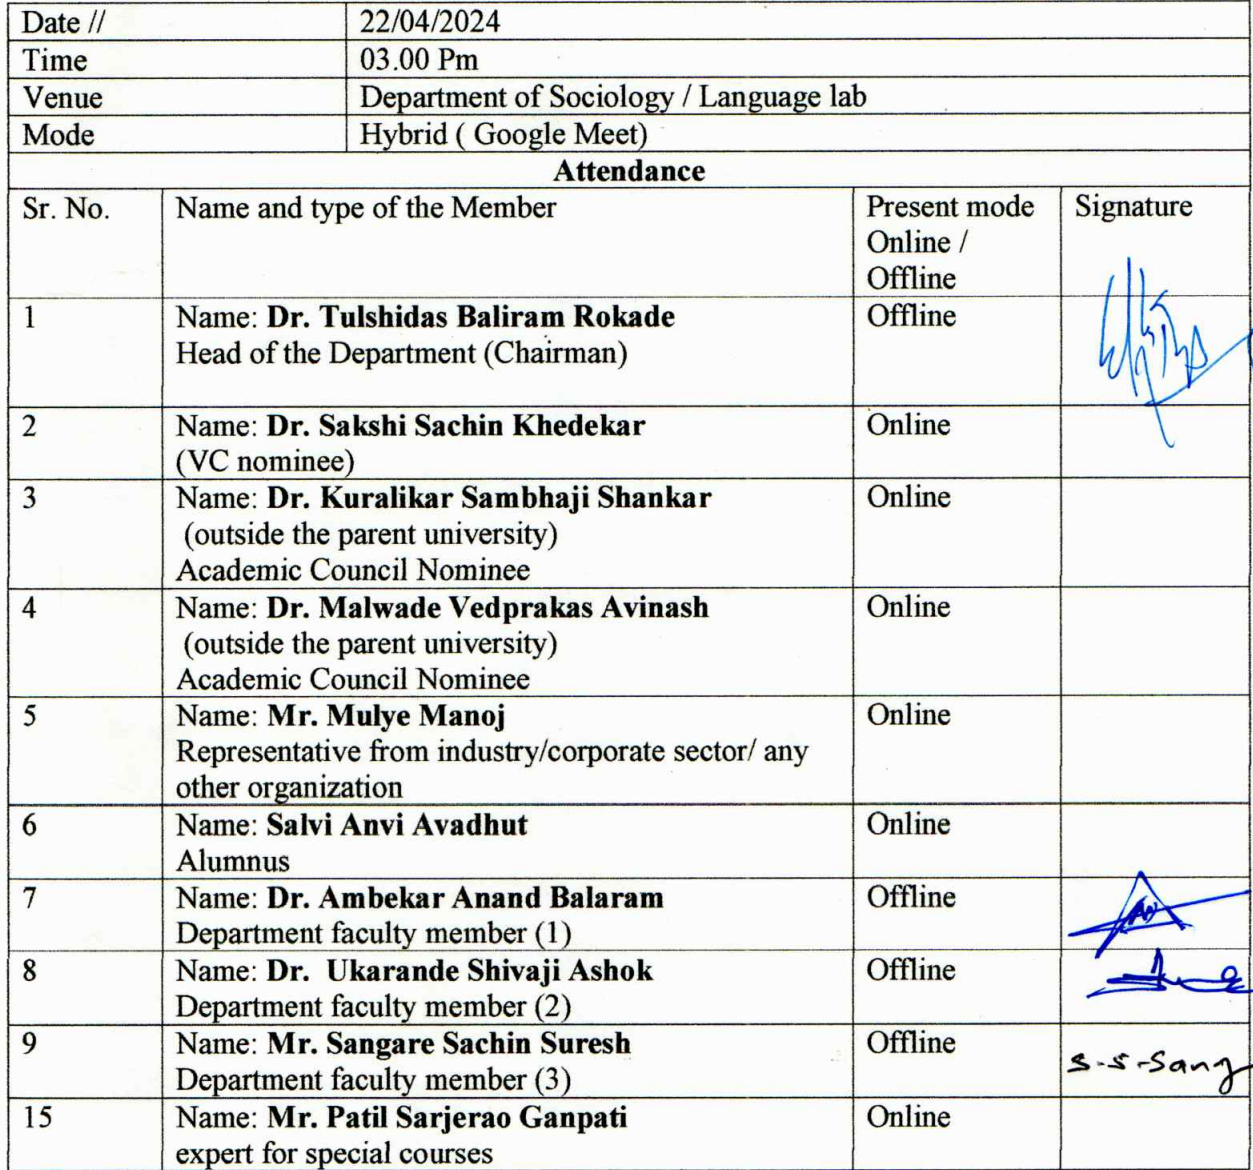 Date // 22/04/2024
Time 03.00 Pm
Venue Department of Sociology / Language lab
Mode Hybrid ( Google Meet)
Attendance
Sr. No. Name and type of the Member Present mode Signature
Online /
Offline
1 Name: Dr. Tulshidas Baliram Rokade Offline
Head of the Department (Chairman)
2 Name: Dr. Sakshi Sachin Khedekar Online
(VC nominee)
3 Name: Dr. Kuralikar Sambhaji Shankar Online
(outside the parent university)
Academic Council Nominee
4 Name: Dr. Malwade Vedprakas Avinash Online
(outside the parent university)
Academic Council Nominee
5 Name: Mr. Mulye Manoj Online
Representative from industry/corporate sector/ any
other organization
6 Name: Salvi Anvi Avadhut Online
Alumnus
7 Name: Dr. Ambekar Anand Balaram Offline
Department faculty member (1)
8 Name: Dr. Ukarande Shivaji Ashok Offline
Department faculty member (2)
9 Name: Mr. Sangare Sachin Suresh Offline S-S-Sang
Department faculty member (3)
15 Name: Mr. Patil Sarjerao Ganpati Online
expert for special courses